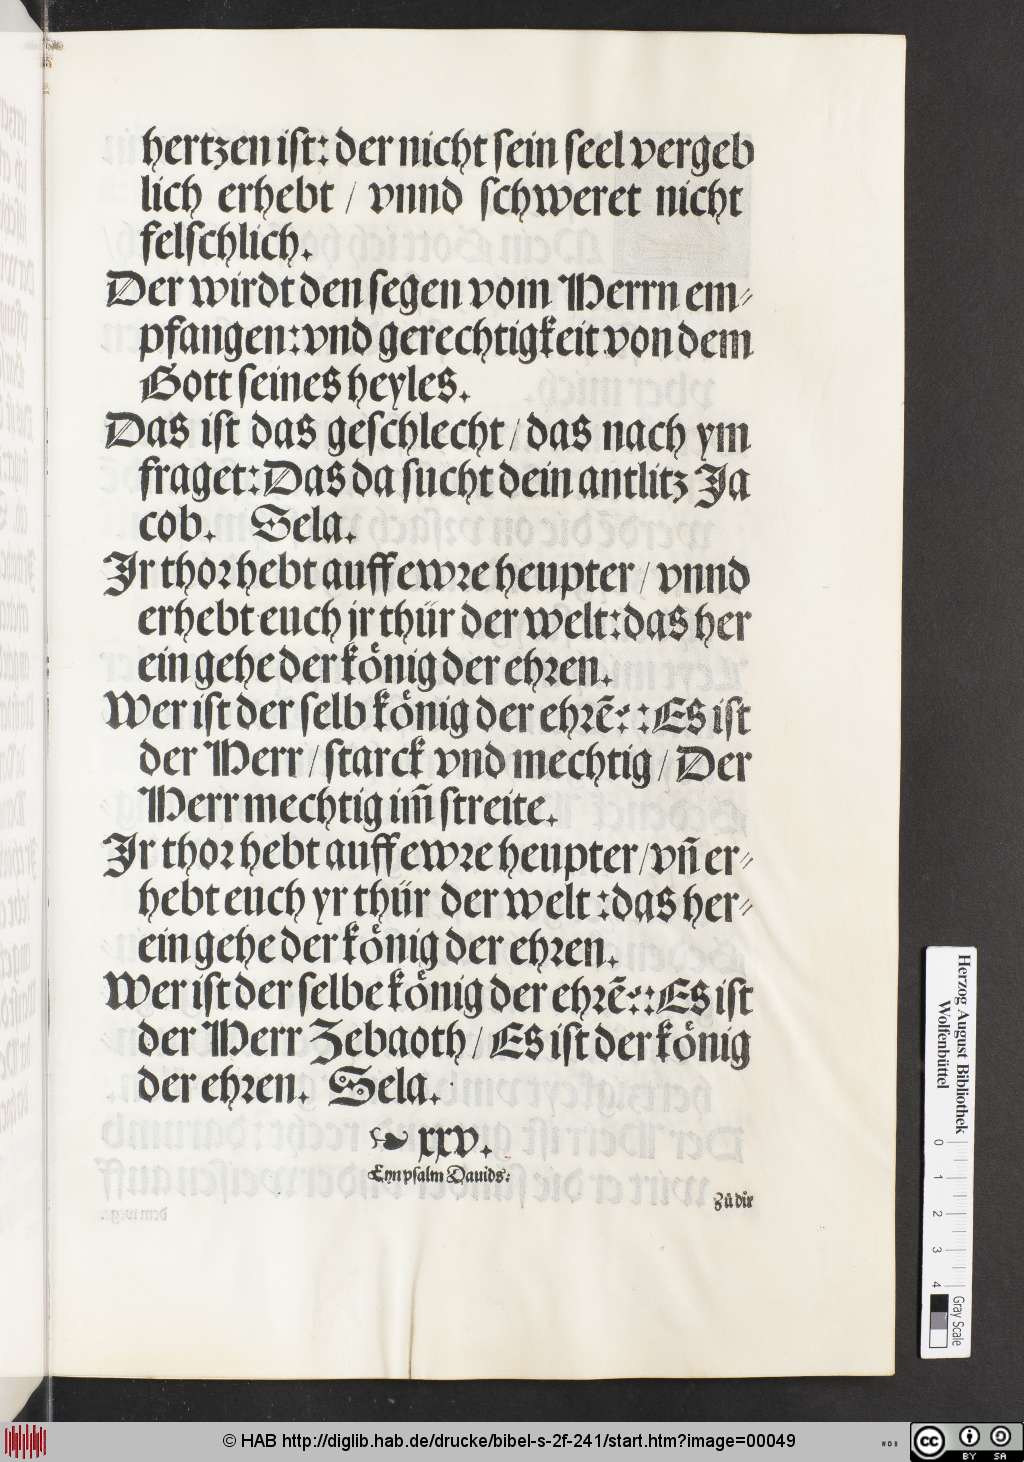 hertzen ist: der nicht sein seel vergeb
lich erhebt / vnnd schweret nicht
felschlich.
Der wirdt den segen vom Herrn em⸗
pfangen: vnd gerechtigkeit von dem
Gott seines heyles.
Das ist das geschlecht / das nach ym
fraget: Das da sucht dein antlitz Ja
cob. Sela.
Jr thor hebt auff ewre heupter / vnnd
erhebt euch jr thür der welt: das her
ein gehe der könig der ehren.
Wer ist der selb könig der ehrē: : Es ist
der Herr / starck vnd mechtig / Der
Herr mechtig im̄ streite.
Jr thor hebt auff ewre heupter / vn̄ er⸗
hebt euch yr thür der welt : das her⸗
ein gehe der könig der ehren.
Wer ist der selbe könig der ehrē: : Es ist
der Herr Zebaoth / Es ist der könig
der ehren. Sela.
❧ xxv.
Eyn psalm Dauids:
Zů dir
Herzog August Bibliothek
Wolfenbüttel
0 1 2 3 4
Gray Scale
© HAB http://diglib.hab.de/drucke/bibel-s-2f-241/start.htm?image=00049
WDB
cc BY SA